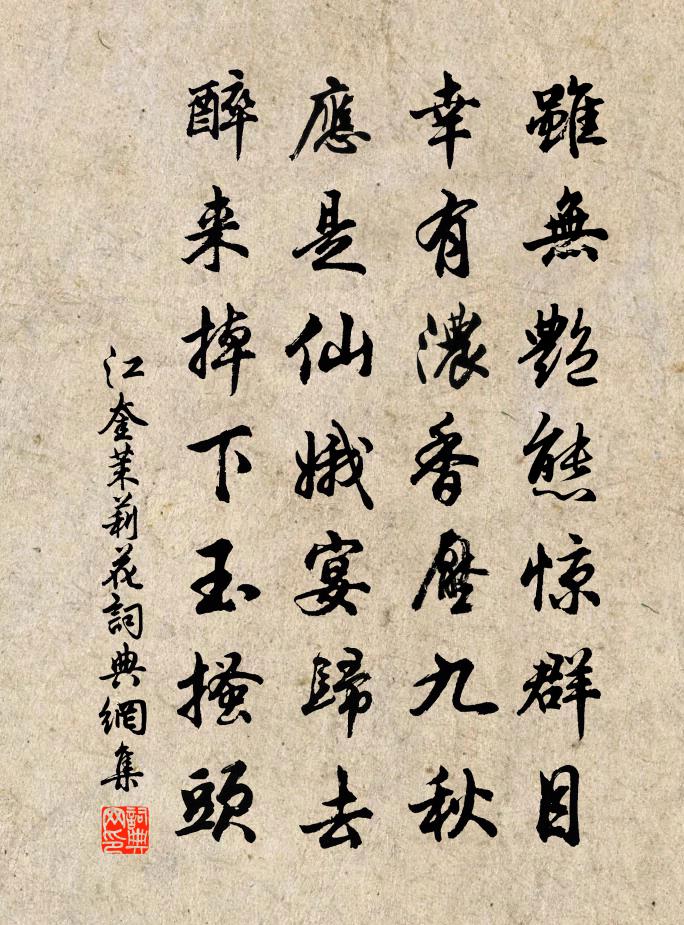 雖無艷態惊群目
幸有濃香壓九秋
應是仙娥宴歸去
醉来掉下玉搔頭
江奎茉莉花詞典網集
詞典网印